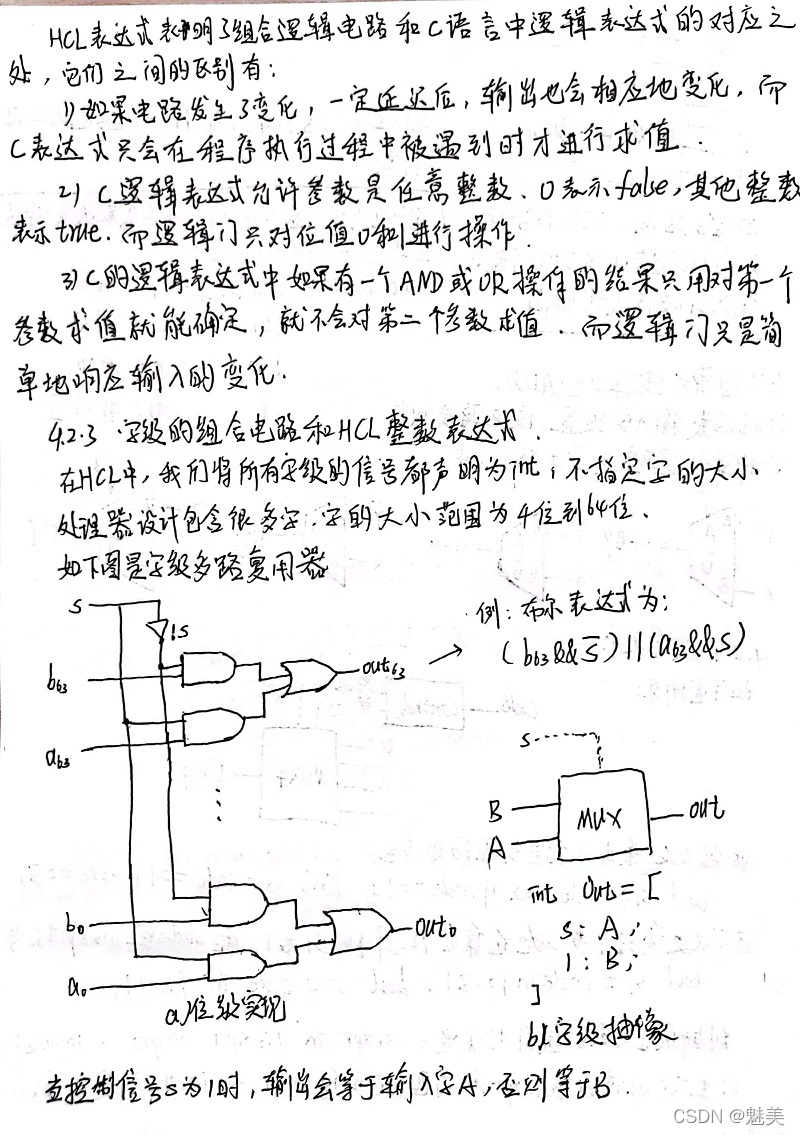 HCL表达式表明了组合逻辑电路和C语言中逻辑表达式的对应之
处，它们之间的区别有：
1) 如果电路发生了变化，一定延迟后，输出也会相应地变化，而
C表达式只会在程序执行过程中被遇到时才进行求值.
2) C逻辑表达式允许参数是任意整数、0表示false,其他整数
表示true.而逻辑门只对位值0和1进行操作.
3) C的逻辑表达式中如果有一个AND或OR操作的结果只用对第一个
参数求值就能确定，就不会对第二个参数求值.而逻辑门只是简
单地响应输入的变化.
4.2.3 字级的组合电路和HCL整数表达式.
在HCL中，我们将所有字级的信号都声明为int，不指定字的大小.
处理器设计包含很多字.字的大小范围为4位到64位.
如下图是字级多路复用器
s
!s
b63
a63
out63
例：布尔表达式为：
(b63&&s̅)||(a63&&s)
s
B
A
MUX
out
b0
a0
out0
a)位级实现
int Out = [
s: A;
1: B;
]
b)字级抽像
当控制信号s为1时，输出会等于输入字A，否则等于B.
CSDN @魅美